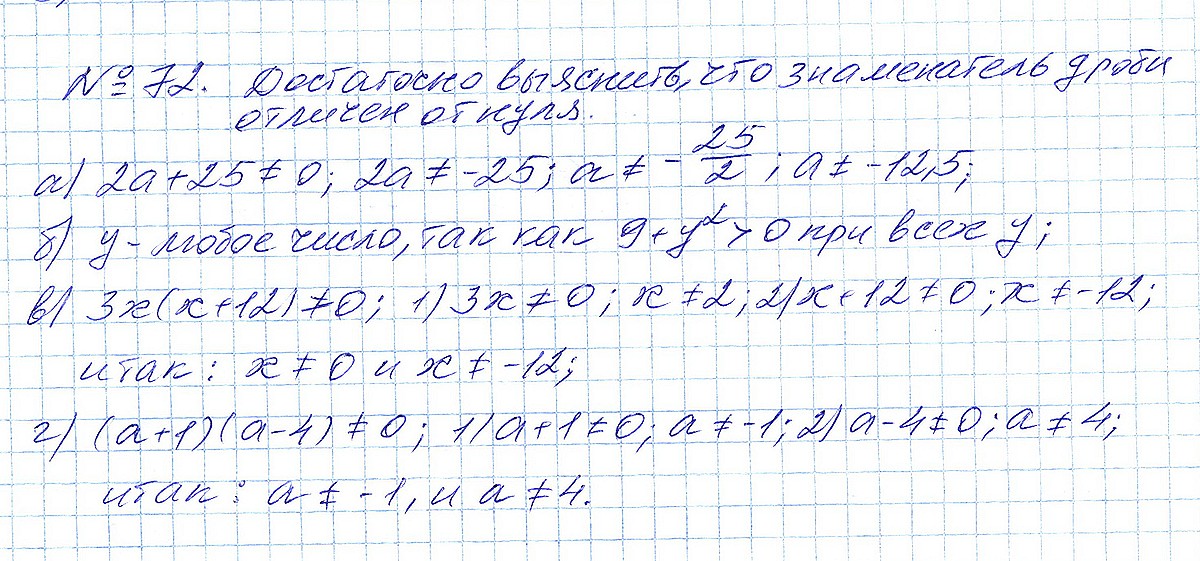 № 72. Достаточно выяснить, что знаменатель дроби
отличен от нуля.
а) 2a+25≠0; 2a≠-25; a≠-25/2; a≠-12,5;
б) y - любое число, так как 9+y²>0 при всех y;
в) 3x(x+12)≠0; 1) 3x≠0; x≠2; 2) x+12≠0; x≠-12;
итак: x≠0 и x≠-12;
г) (a+1)(a-4)≠0; 1) a+1≠0; a≠-1; 2) a-4≠0; a≠4;
итак: a≠-1, и a≠4.